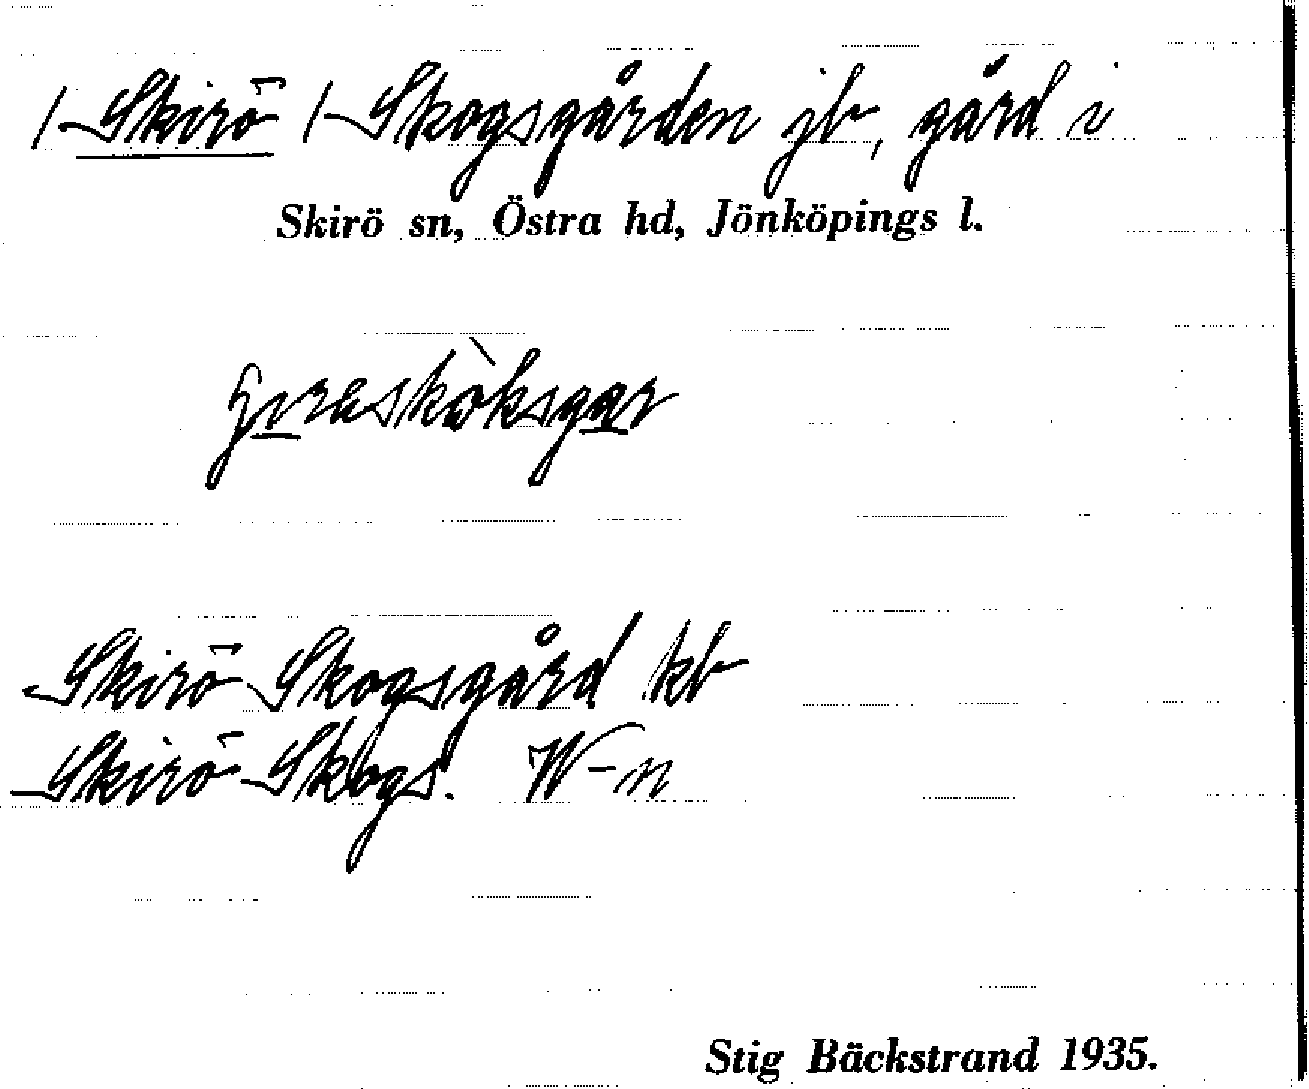 /Skirö/ Skogsgården jb, gård i
Skirö sn, Östra hd, Jönköpings l.
Skirö Skogsgård kb
Skirö Skogs. W-n
Stig Bäckstrand 1935.